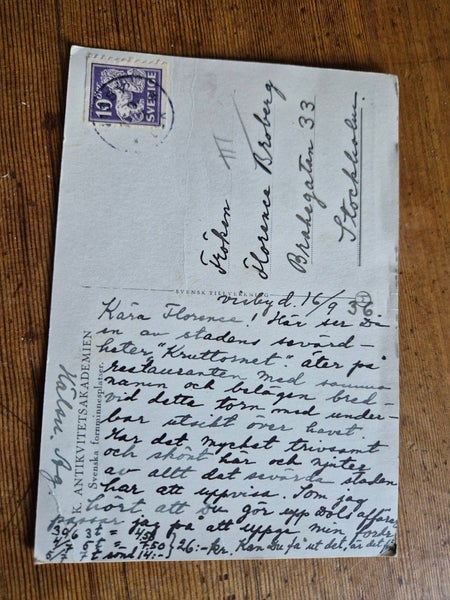 10 ÖRE
SVERIGE
Fröken
Florence Broberg
Brahegatan 33
Stockholm.
SVENSK TILLVERKNING
K. ANTIKVITETSAKADEMIEN
Svenska fornminnesplatser.
Visby d. 16/9 36
Kära Florence! Här ser Du
en av stadens sevärd-
heter "Kruttornet". Äter på
restauranten med samma
namn och belägen bred-
vid detta torn med under-
bar utsikt över havet.
Har det mycket trivsamt
och skönt här och njuter
av allt det sevärda staden
har att uppvisa. Som jag
hört att Du gör upp affärer
passar jag på att uppge min fordr.
26:- kr. Kan du få ut det, är det